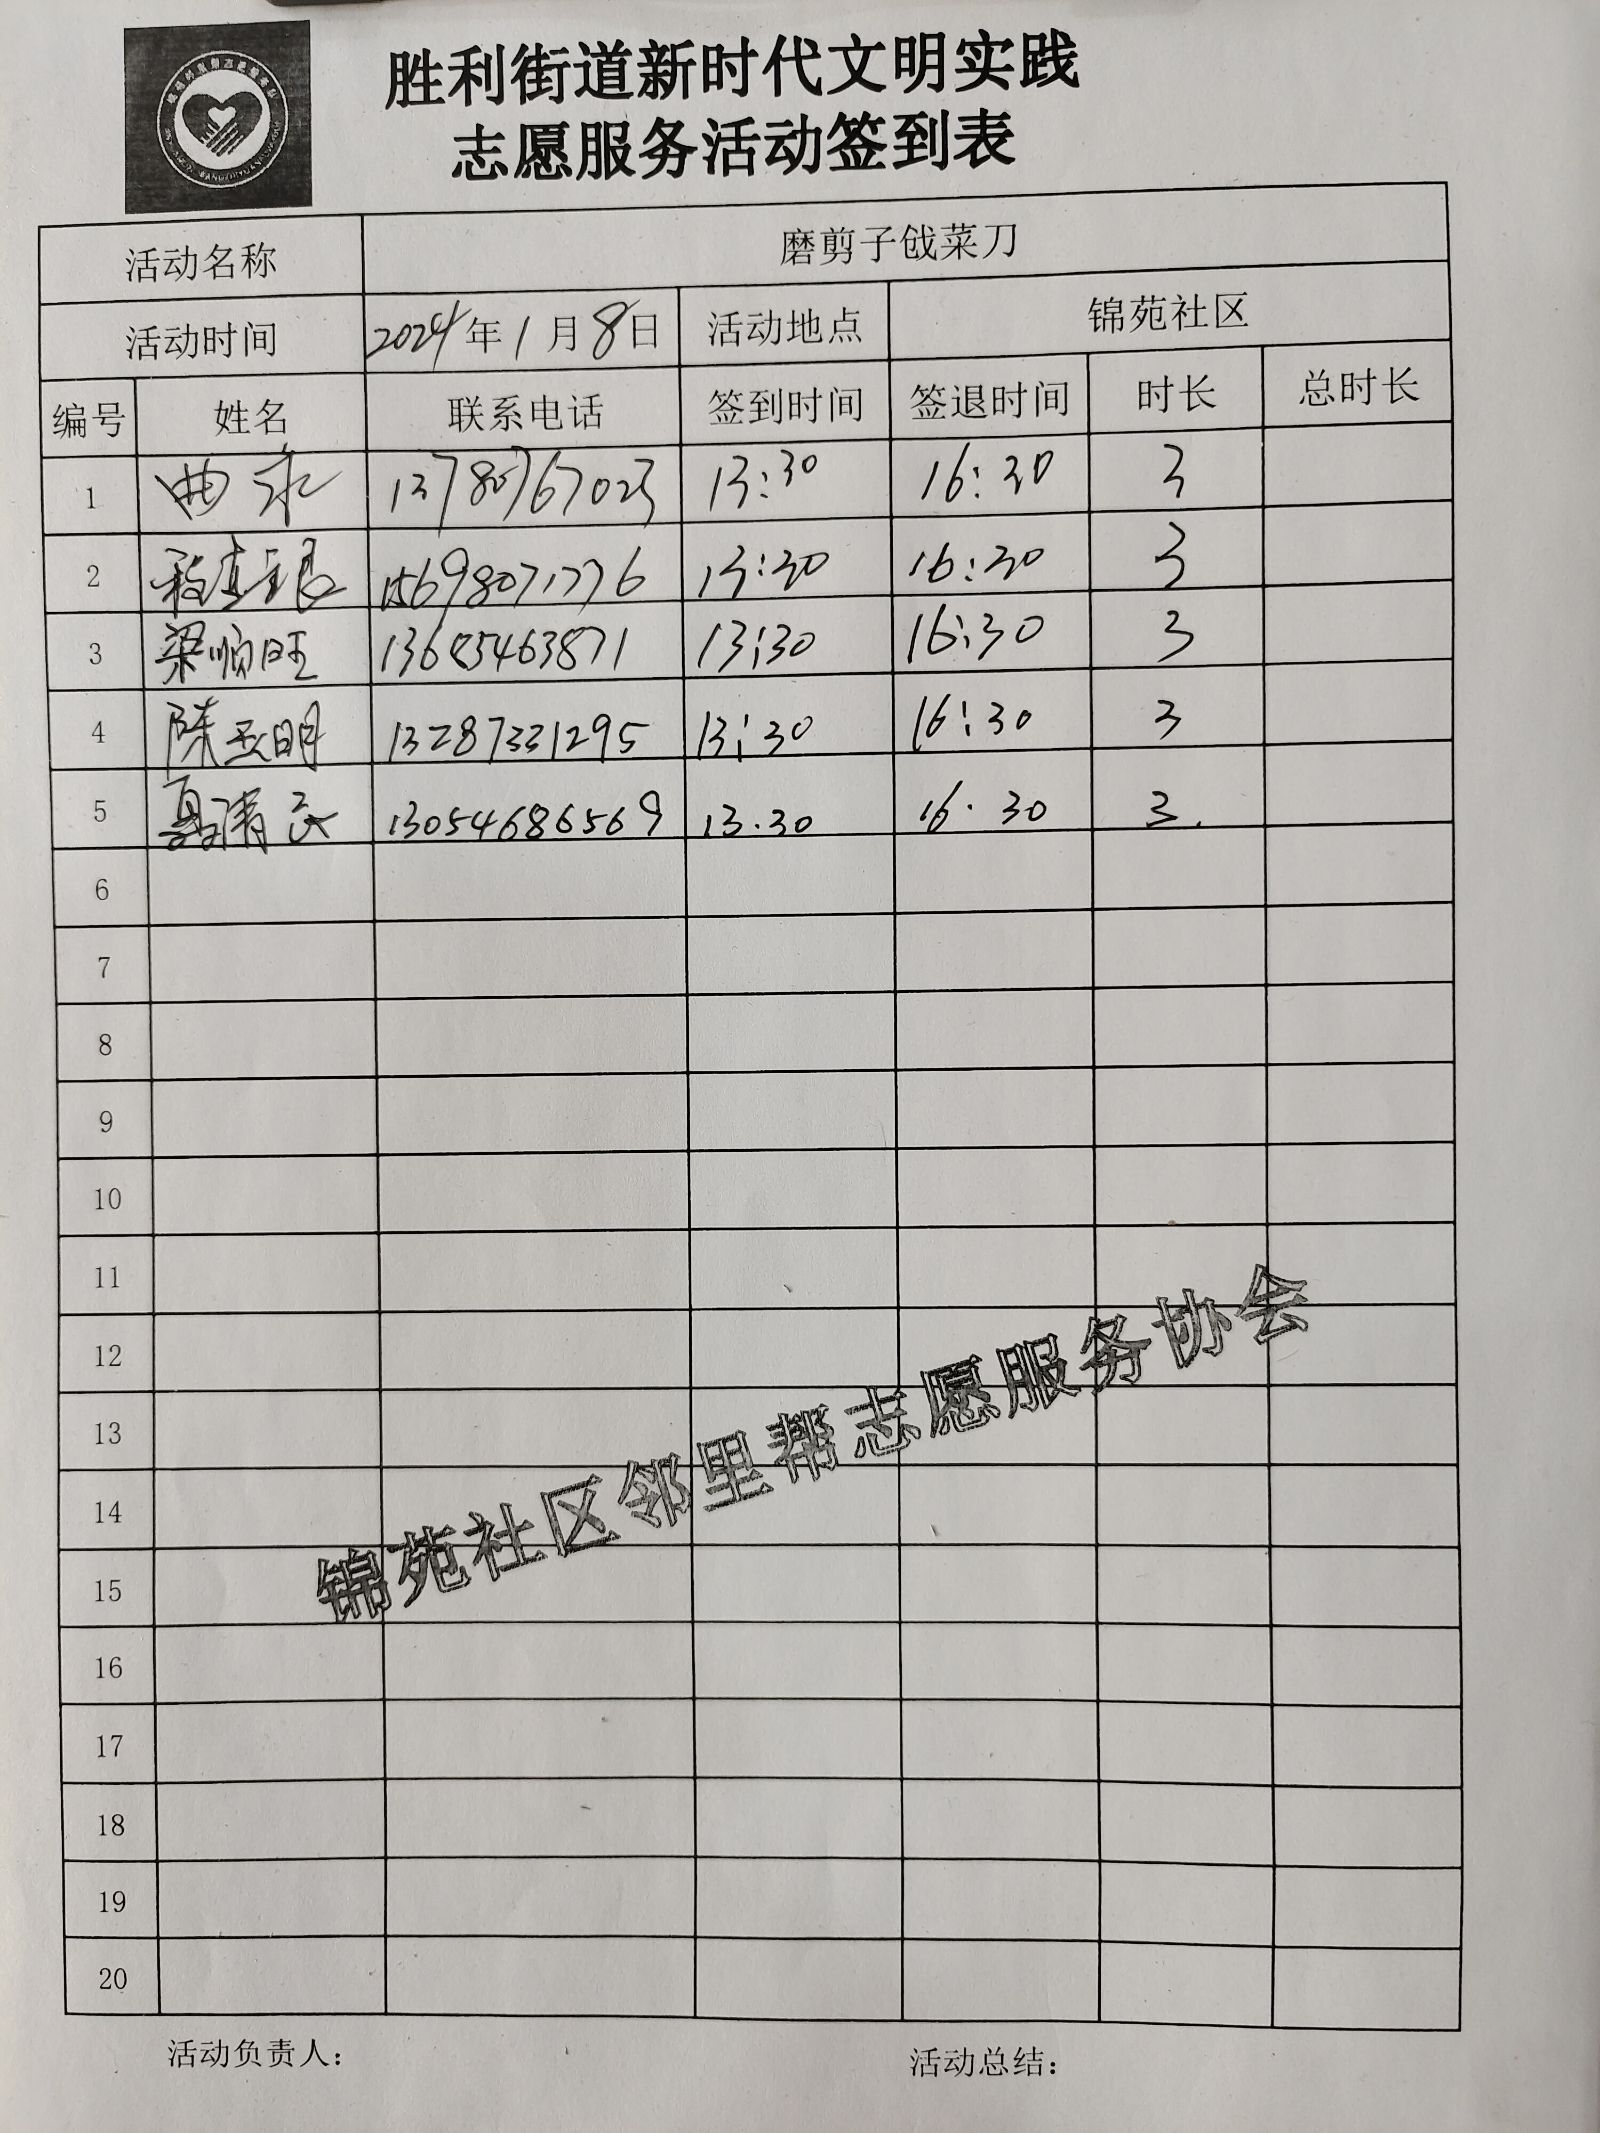 胜利街道新时代文明实践
志愿服务活动签到表
活动名称 磨剪子戗菜刀
活动时间 2024年1月8日 活动地点 锦苑社区
编号 姓名 联系电话 签到时间 签退时间 时长 总时长
1 曲永 13780767023 13:30 16:30 3
2 15698071776 13:30 16:30 3
3 梁顺旺 13685463871 13:30 16:30 3
4 陈玉明 13287331295 13:30 16:30 3
5 13054686569 13.30 16.30 3.
6
7
8
9
10
11
12
13
14
15
16
17
18
19
20
锦苑社区邻里帮志愿服务协会
活动负责人: 活动总结: